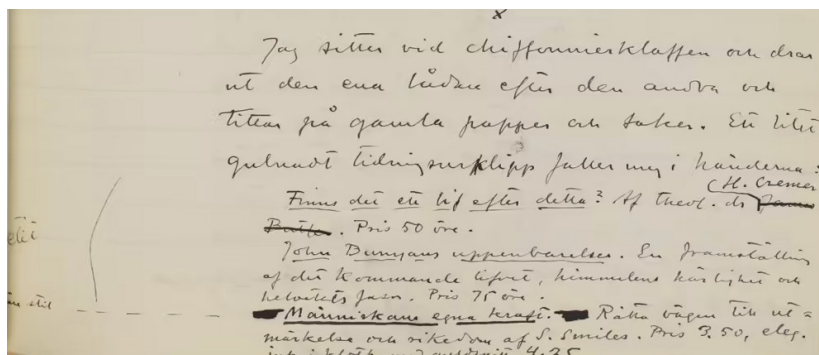 x
Jag sitter vid chiffonnierklaffen och drar
ut den ena lådan efter den andra och
tittar på gamla papper och saker. Ett litet
gulnadt tidningsurklipp faller mig i händerna:
(H. Cremer
Finns det ett lif efter detta? Af theol. dr James
. Pris 50 öre.
John Bunyans uppenbarelser. En framställning
af det kommande lifvet, himmelens härlighet och
helvetets fasor. Pris 75 öre.
Människans egna kraft. Rätta vägen till ut=
märkelse och rikedom af S. Smiles. Pris 3.50, eleg.
4.25